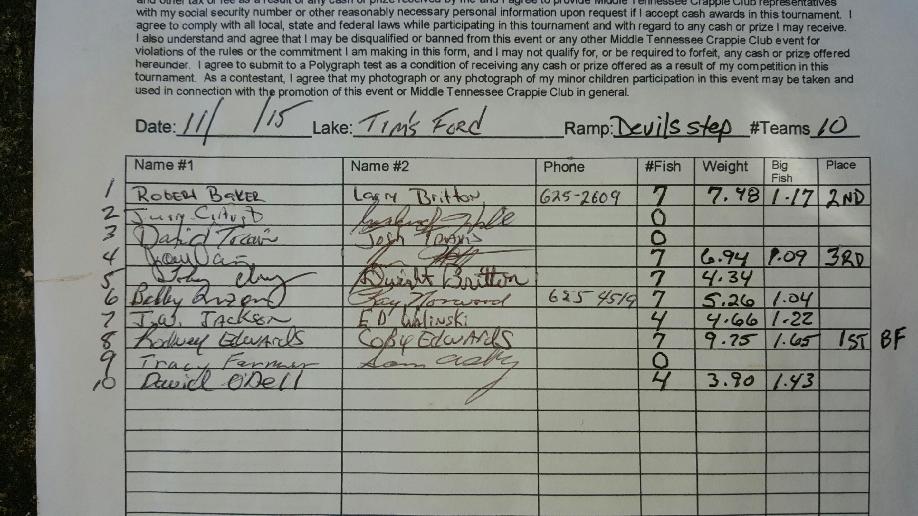 with my social security number or other reasonably necessary personal information upon request if I accept cash awards in this tournament. I
agree to comply with all local, state and federal laws while participating in this tournament and with regard to any cash or prize I may receive.
I also understand and agree that I may be disqualified or banned from this event or any other Middle Tennessee Crappie Club event for
violations of the rules or the commitment I am making in this form, and I may not qualify for, or be required to forfeit, any cash or prize offered
hereunder. I agree to submit to a Polygraph test as a condition of receiving any cash or prize offered as a result of my competition in this
tournament. As a contestant, I agree that my photograph or any photograph of my minor children participation in this event may be taken and
used in connection with the promotion of this event or Middle Tennessee Crappie Club in general.
Date: 11/ /15 Lake: TIM'S FORD Ramp: Devils step #Teams 10
Name #1 Name #2 Phone #Fish Weight Big Fish Place
1 ROBERT BAKER Larry Britton 625-2609 7 7.48 1.17 2ND
2 0
3 David Travis Josh TRAVIS 0
4 7 6.94 1.09 3RD
5 Dwight Britton 7 4.34
6 Bobby Ray Norwood 625 4519 7 5.26 1.04
7 J.W. JACKSON ED Walinski 4 4.66 1.22
8 Rodney Edwards COBY EDWARDS 7 9.75 1.65 1ST BF
9 Tracy Farmer Sam 0
10 David O'Dell 4 3.90 1.43